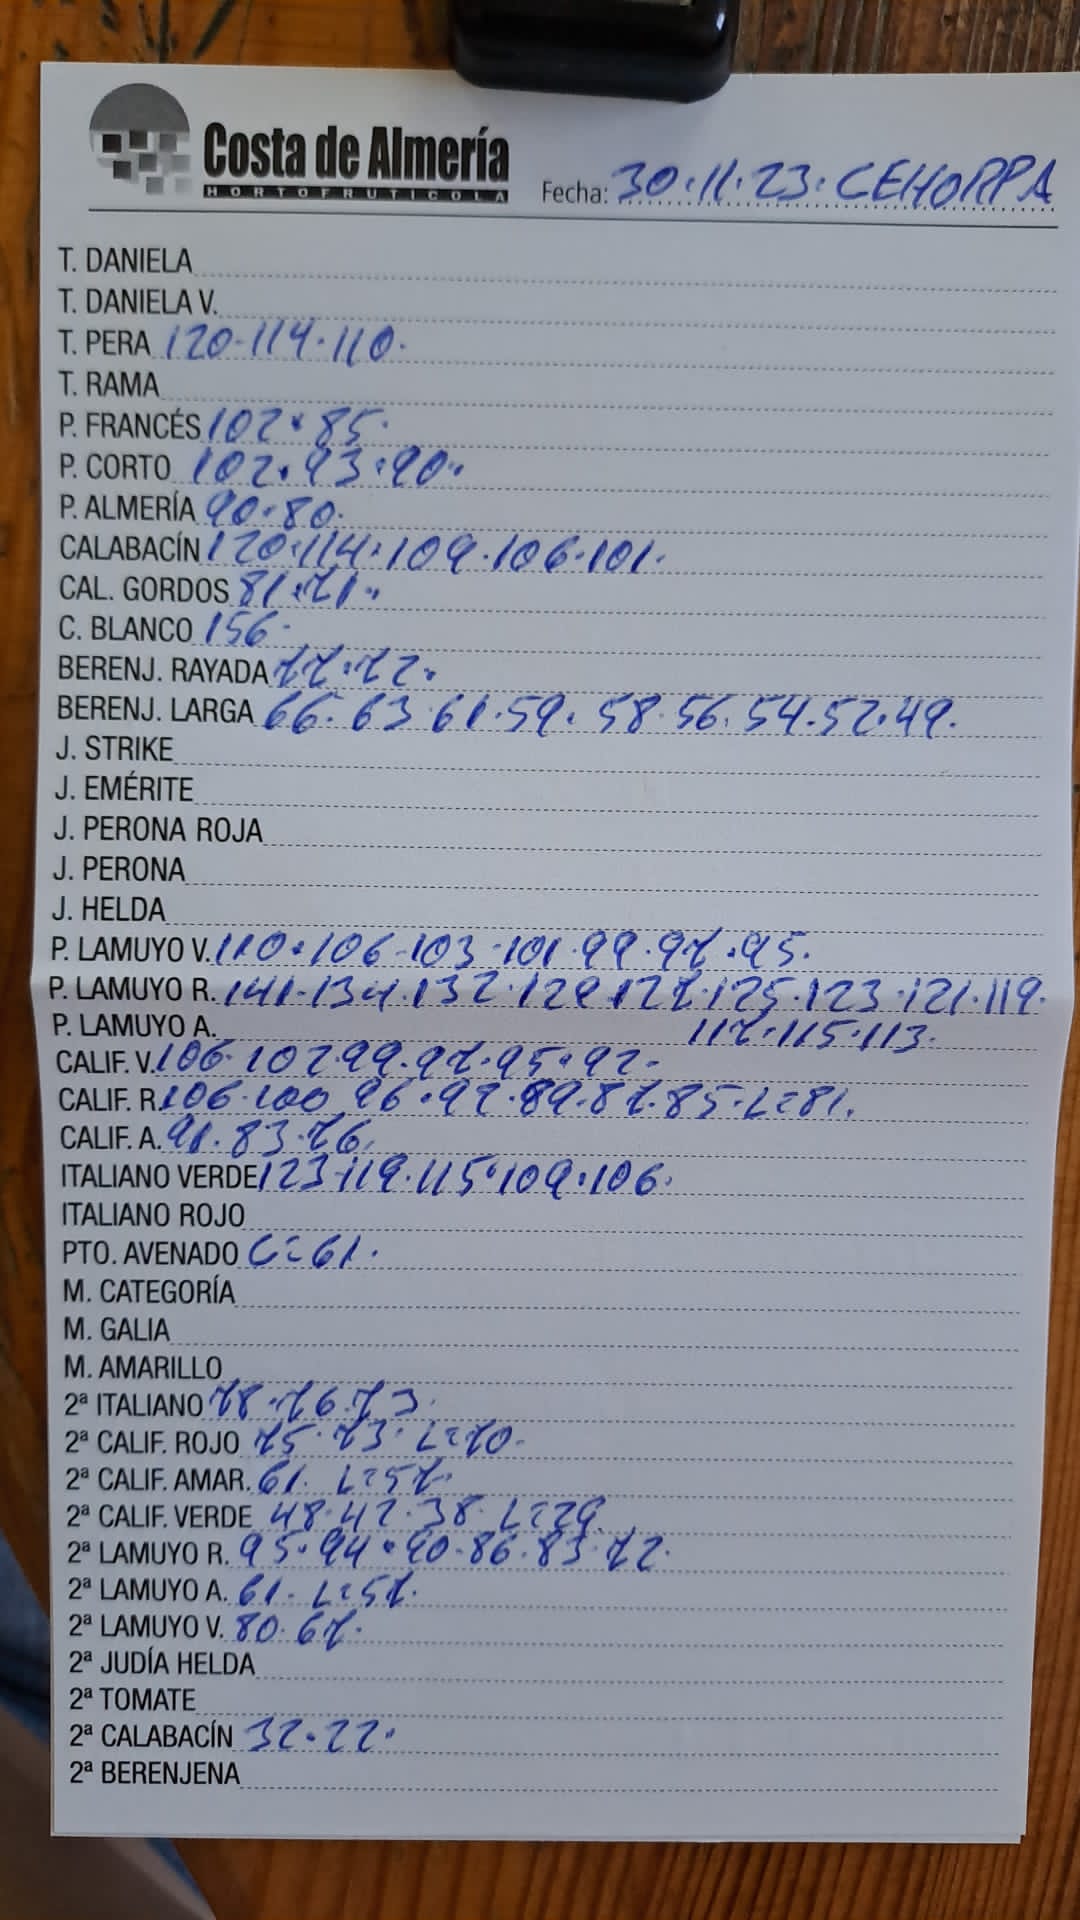 Costa de Almería
HORTOFRUTICOLA
Fecha: 30.11.23. CEHORPA
T. DANIELA
T. DANIELA V.
T. PERA 120.114.110.
T. RAMA
P. FRANCÉS 102.85.
P. CORTO 102.93.90.
P. ALMERÍA 90.80.
CALABACÍN 120.114.109.106.101.
CAL. GORDOS 81.71.
C. BLANCO 156.
BERENJ. RAYADA 77.72.
BERENJ. LARGA 66.63.61.59.58.56.54.52.49.
J. STRIKE
J. EMÉRITE
J. PERONA ROJA
J. PERONA
J. HELDA
P. LAMUYO V. 110.106.103.101.99.97.95.
P. LAMUYO R. 141.134.132.129.127.125.123.121.119.
P. LAMUYO A. 117.115.113.
CALIF. V. 106.102.99.97.95.92.
CALIF. R. 106.100.96.92.89.87.85.L=81.
CALIF. A. 91.83.76.
ITALIANO VERDE 123.119.115.109.106.
ITALIANO ROJO
PTO. AVENADO C=61.
M. CATEGORÍA
M. GALIA
M. AMARILLO
2ª ITALIANO 78.76.73.
2ª CALIF. ROJO 75.73.L=70.
2ª CALIF. AMAR. 61. L=57.
2ª CALIF. VERDE 48.42.38.L=29.
2ª LAMUYO R. 95.94.90.86.83.72.
2ª LAMUYO A. 61. L=57.
2ª LAMUYO V. 80.67.
2ª JUDÍA HELDA
2ª TOMATE
2ª CALABACÍN 32.22.
2ª BERENJENA